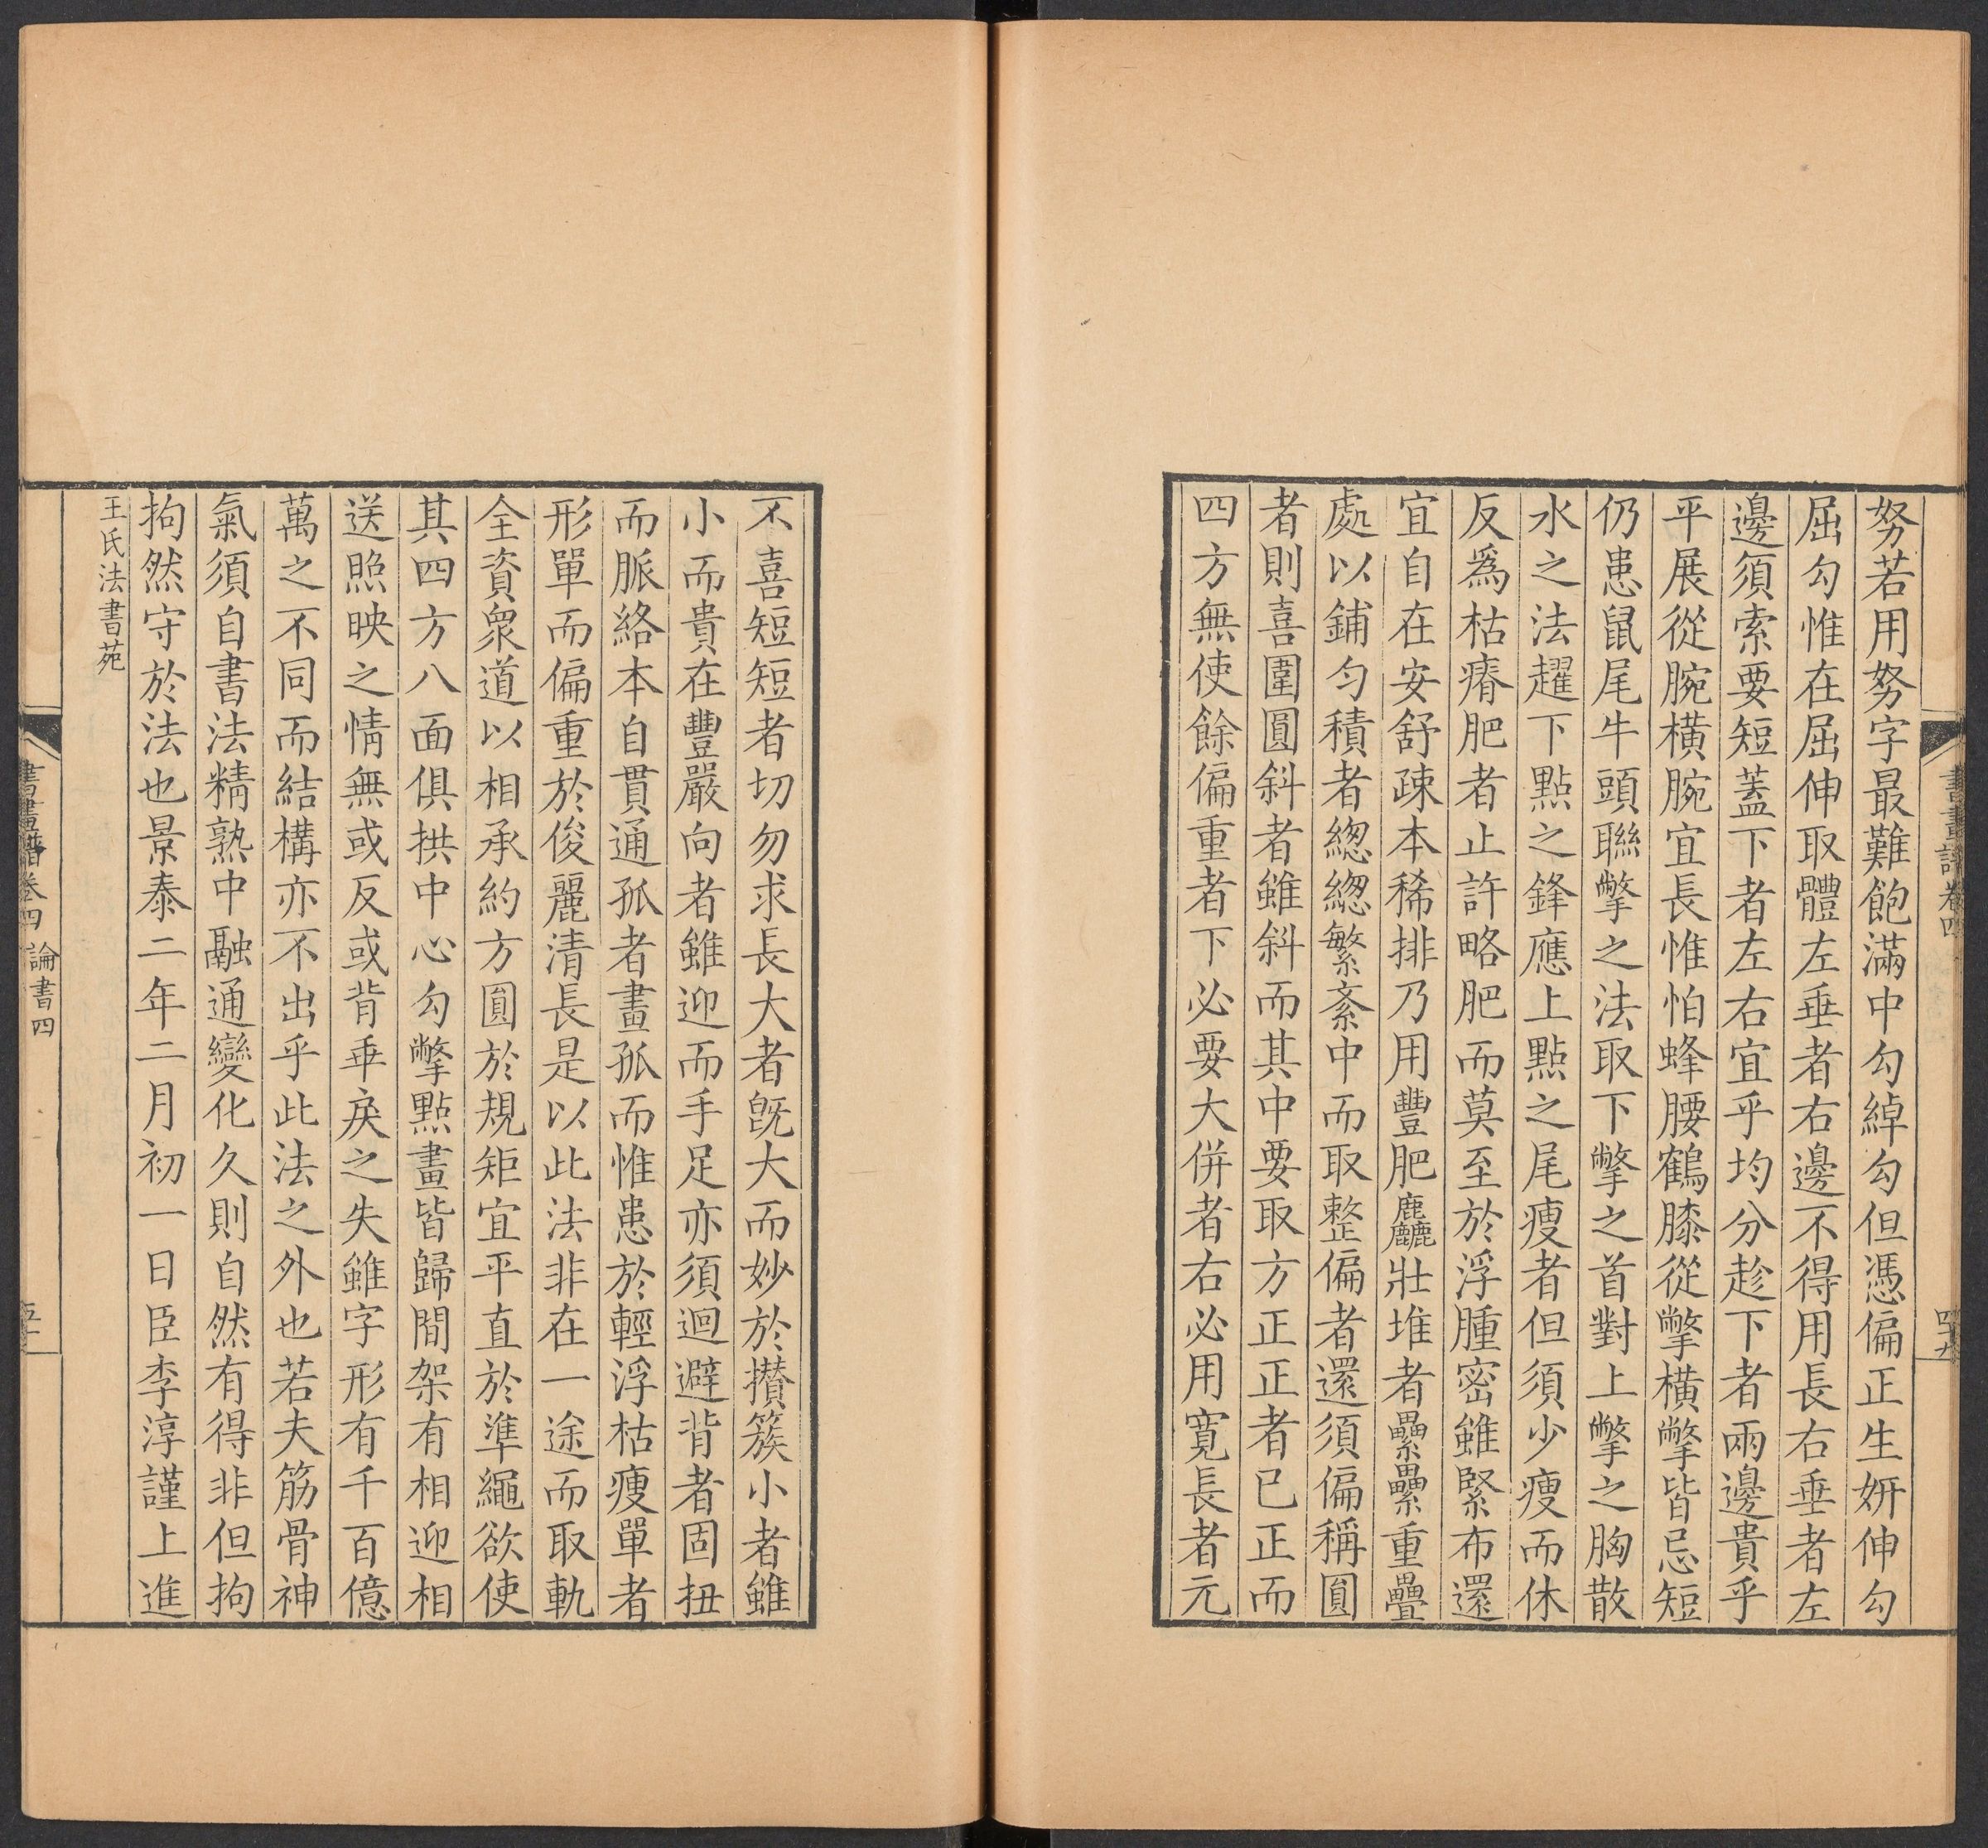 書畫譜卷四
四十九
努若用努字最難飽滿中勾綽勾但憑偏正生妍伸勾
屈勾惟在屈伸取體左垂者右邊不得用長右垂者左
邊須索要短蓋下者左右宜乎均分趁下者兩邊貴乎
平展從腕橫腕宜長惟怕蜂腰鶴膝從撆橫撆皆忌短
仍患鼠尾牛頭聯撆之法取下撆之首對上撆之胸散
水之法趯下點之鋒應上點之尾瘦者但須少瘦而休
反爲枯瘠肥者止許略肥而莫至於浮腫密雖緊布還
宜自在安舒疎本稀排乃用豐肥麤壯堆者纍纍重疊
處以鋪勻積者緫緫繁紊中而取整偏者還須偏稱圓
者則喜圍圓斜者雖斜而其中要取方正正者已正而
四方無使餘偏重者下必要大併者右必用寬長者元
不喜短短者切勿求長大者旣大而妙於攢簇小者雖
小而貴在豐嚴向者雖迎而手足亦須迴避背者固扭
而脈絡本自貫通孤者畫孤而惟患於輕浮枯瘦單者
形單而偏重於俊麗清長是以此法非在一途而取軌
全資衆道以相承約方圓於規矩宜平直於準繩欲使
其四方八面俱拱中心勾撆點畫皆歸間架有相迎相
送照映之情無或反或背乖戾之失雖字形有千百億
萬之不同而結構亦不出乎此法之外也若夫筋骨神
氣須自書法精熟中融通變化久則自然有得非但拘
拘然守於法也景泰二年二月初一日臣李淳謹上進
王氏法書苑
書畫譜卷四 論書四